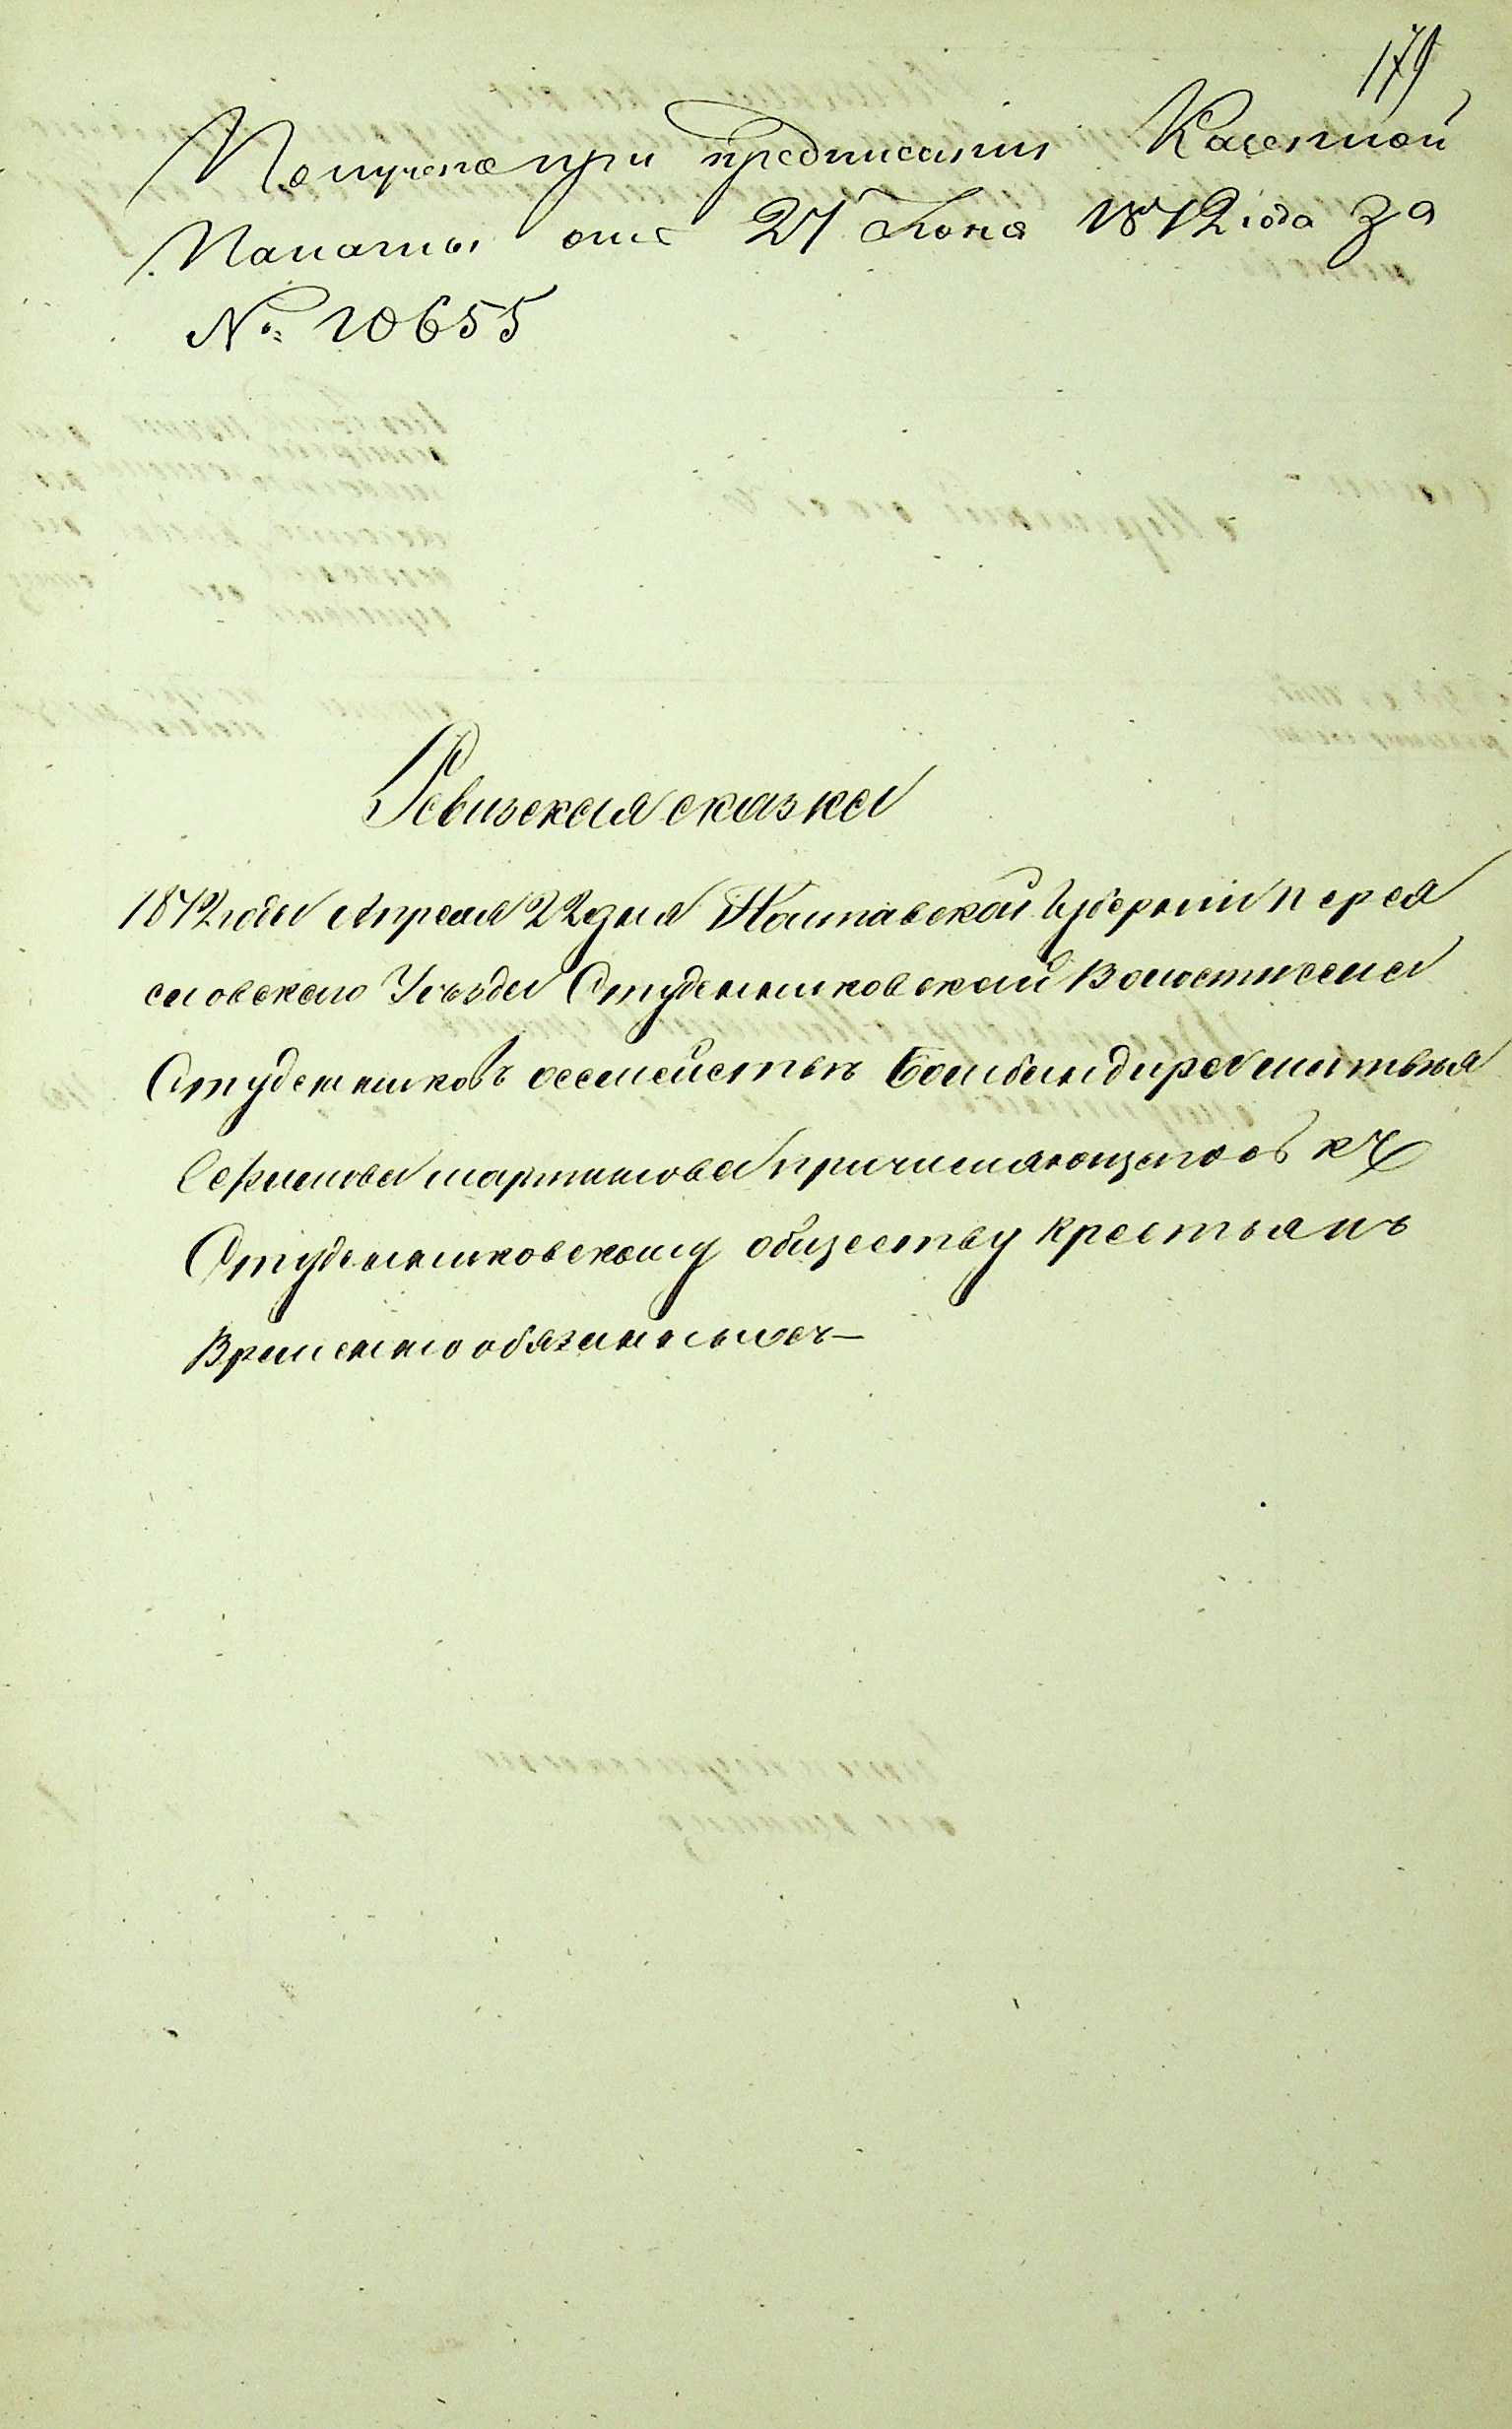 179
Получена при предписании Казенной
Палаты отъ 27 Июня 1872 года за
№ 10655
Ревизская сказка
1872 года Апреля 22 дня Полтавской Губерніи Перея
словского Уѣзда Студениковской Волости села
Студениковъ о семействѣ Бомбандира Матвѣя
Ефимова Мартинова причисляющегося къ
Студениковскому обществу крестьянъ
Временно обязанныхъ